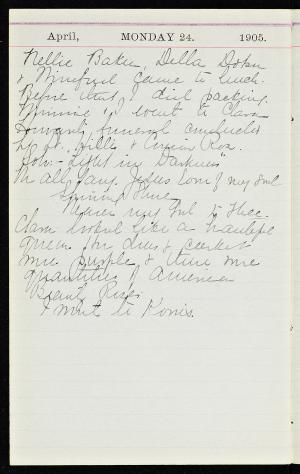 April, MONDAY 24. 1905.
Nellie Baker, Della
& Winifred came to lunch.
Before that I did packing.
Winnie & I went to Clara
funeral conducted
by
Solo:- Light in Darkness
In all Jesus lover of my soul
Nearer my God to Thee.
Clara looked like a beautiful
queen. Her dress & casket
were purple & there were
quantities of American
Beauty Roses.
I went to